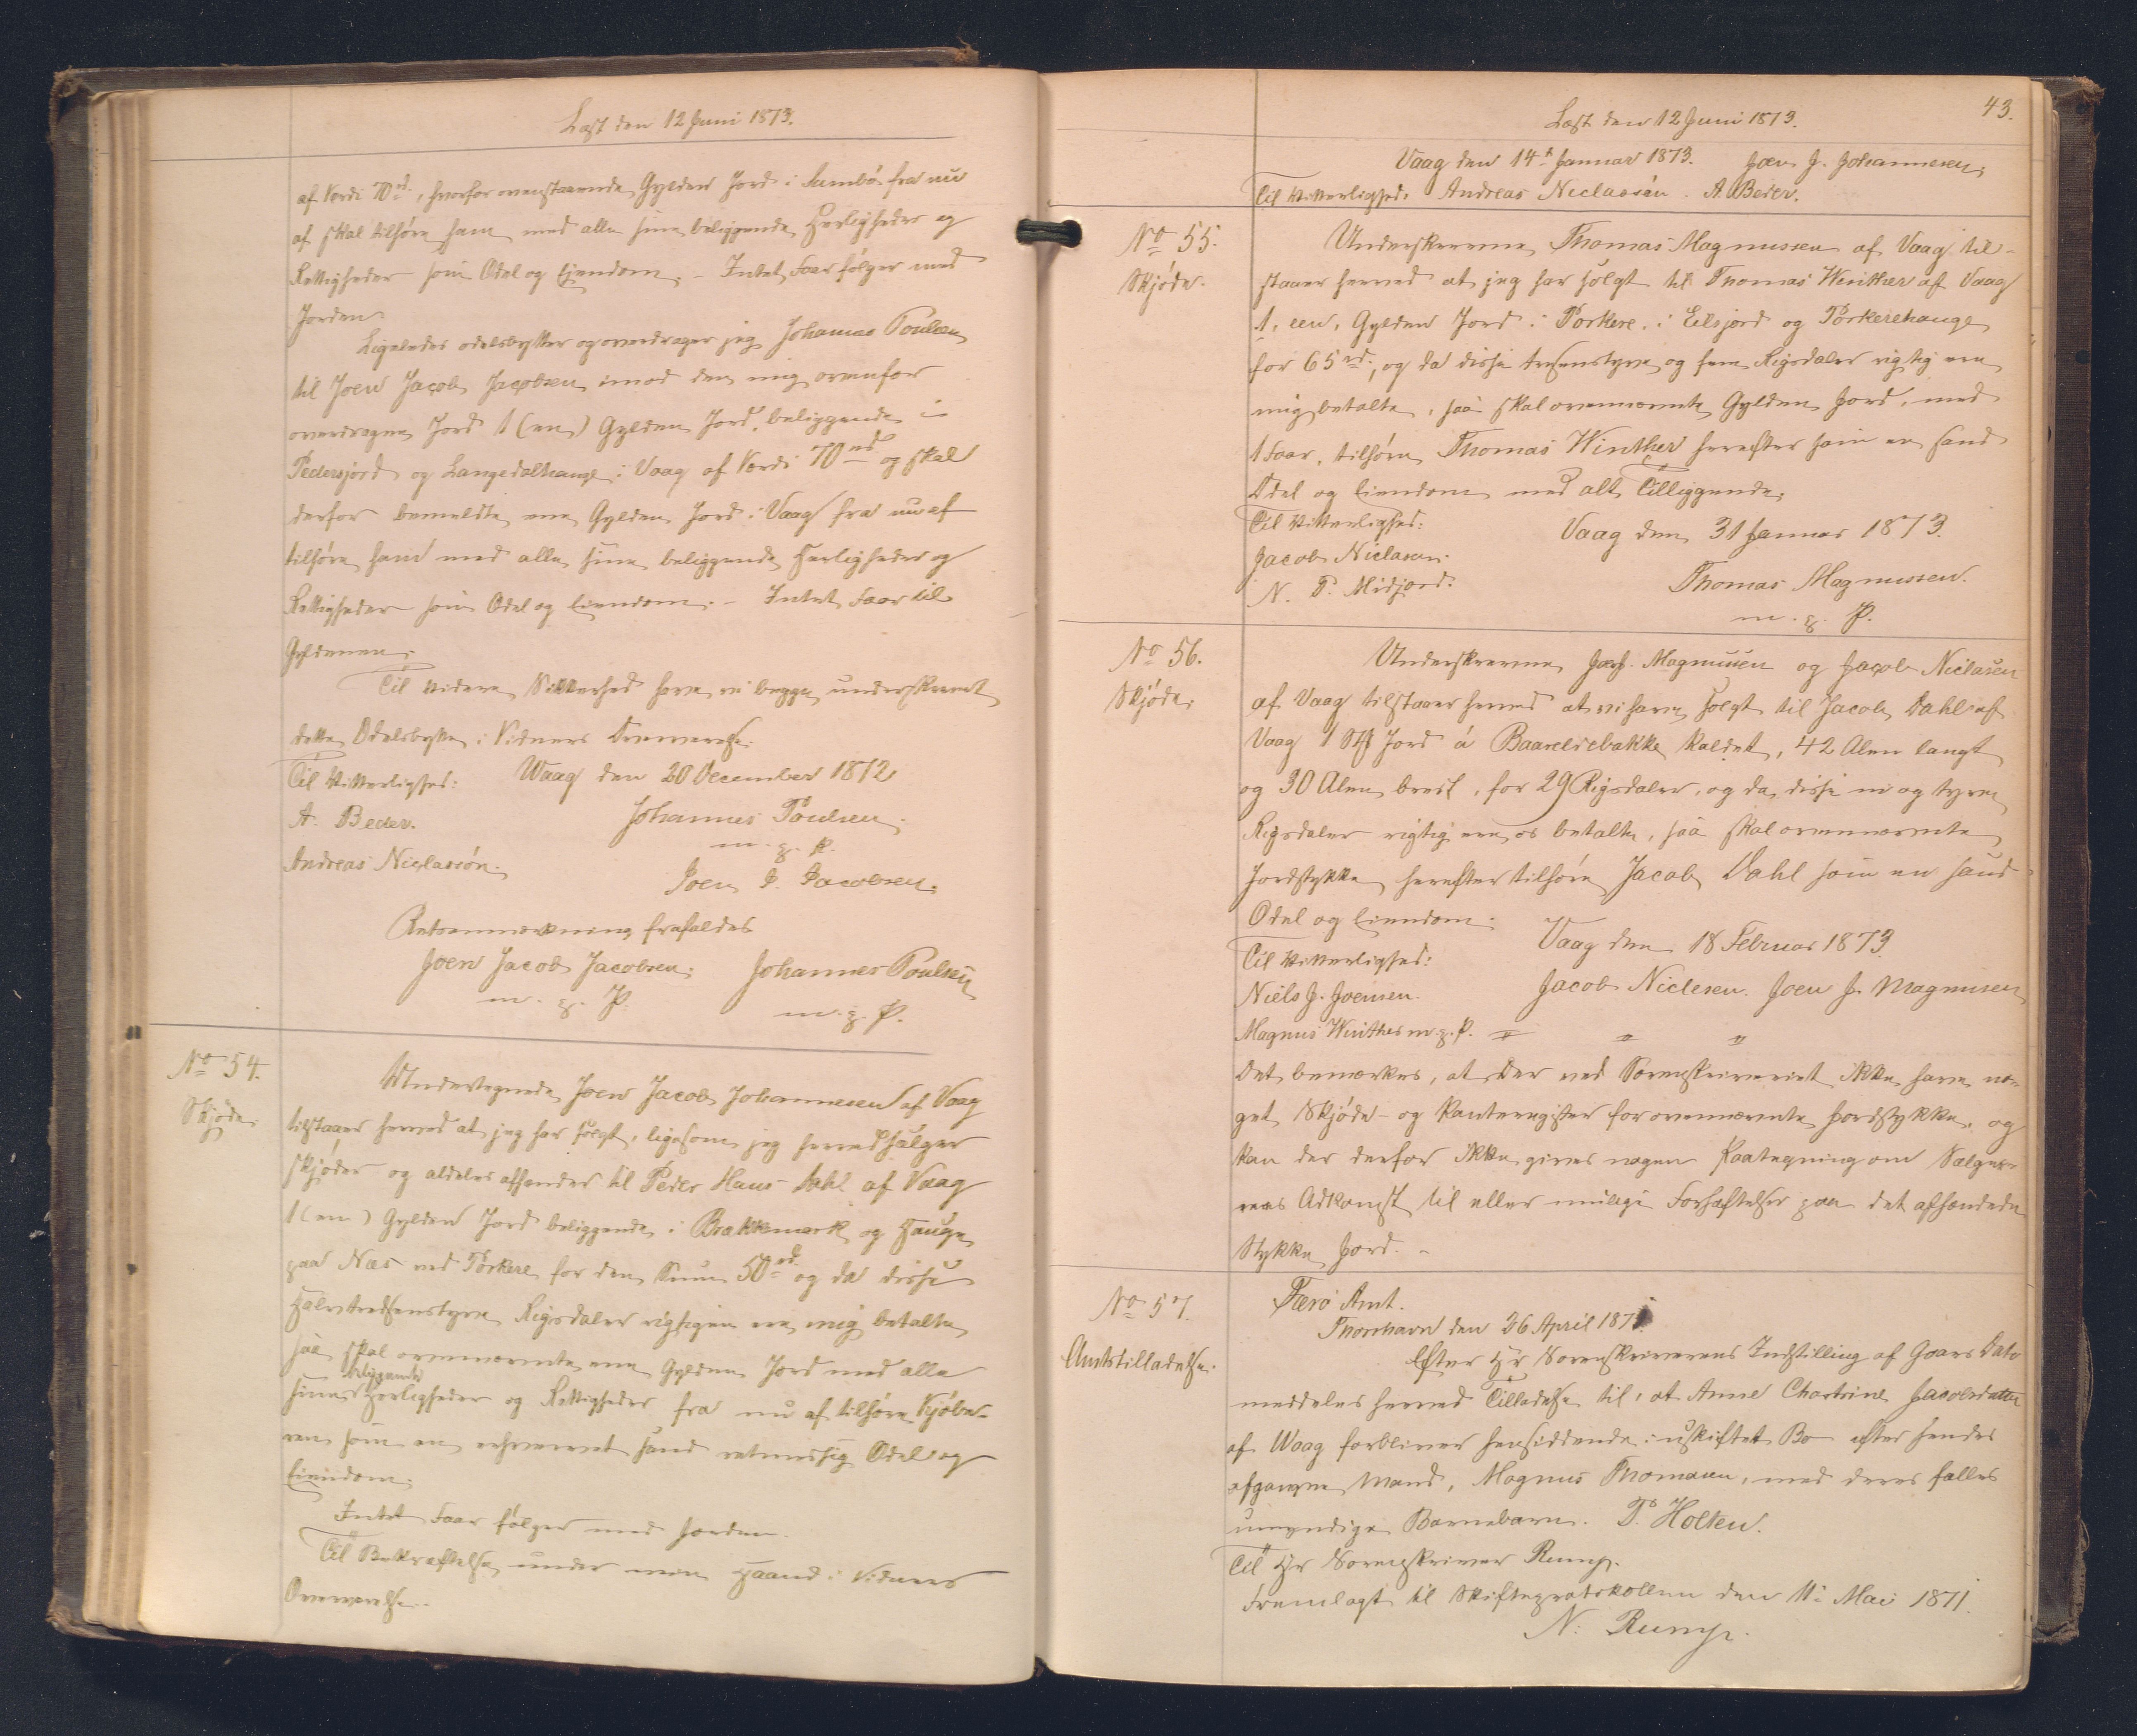 Læst den 12 Juni 1873.
af Værdi 70 rd., hvorfor ovenstaaende Gylden Jord i Sumbø fra nu
af skal tilhøre ham med alle sine beliggende Herligheder og
Rettigheder som Odel og Eiendom. - Intet Faar følger med
Jorden.
Ligeledes odelsbytter og overdrager jeg Johannes Poulsen
til Joen Jacob Jacobsen imod den mig ovenfor
overdragne Jord 1 (en) Gylden Jord, beliggende i
Pedersjord og Langedalhauge i Vaag af Værdi 70 rd. og skal
derfor bemeldte ene Gylden Jord i Vaag fra nu af
tilhøre ham med alle sine beliggende Herligheder og
Rettigheder som Odel og Eiendom. - Intet Faar til
Gyldenen.
Til videre Sikkerhed have vi begge underskrevet
dette Odelsbytte i Vidners Overværelse.
Til Vitterlighed: Waag den 20 December 1872
A. Beder. Johannes Poulsen
m. g. P.
Andreas Niclassøn. Joen J. Jacobsen.
Retsanmærkning frafaldes
Joen Jacob Jacobsen. Johannes Poulsen
m. g. P. m. g. P.
No 54. Undertegnede Joen Jacob Johannesen af Vaag
Skjøde. tilstaaer herved at jeg har solgt, ligesom jeg herved sælger
skjøder og aldeles afhender til Peder Hans Dahl af Vaag
1 (en) Gylden Jord beliggende i Brakkemark og Hauge
paa Næs ved Porkere for den Sum 50 rd. og da disse
Halvtredsenstyve Rigsdaler rigtigen ere mig betalte
saa skal ovennævnte ene Gylden Jord med alle
sine beliggende Herligheder og Rettigheder fra nu af tilhøre Kjøbe-
ren som en erhvervet sand retmessig Odel og
Eiendom.
Intet Faar følger med Jorden.
Til Bekræftelse under min Haand i Vidners
Overværelse.
43.
Læst den 12 Juni 1873.
Vaag den 14 Januar 1873. Joen J. Johannesen.
Til Vitterlighed: Andreas Niclassøn. A. Beder.
No 55. Underskrevne Thomas Magnussen af Vaag til-
Skjøde. staaer herved at jeg har solgt til Thomas Winther af Vaag
1, een, Gylden Jord i Porkere, i Eilsjord og Porkerehauge
for 65 rd., og da disse tresenstyve og fem Rigsdaler rigtig ere
mig betalte, saa skal ovennævnte Gylden Jord, med
1 Faar, tilhøre Thomas Winther herefter som en sand
Odel og Eiendom med alt Tilliggende.
Til Vitterlighed: Vaag den 31 Januar 1873.
Jacob Niclasen. Thomas Magnussen.
N. P. Midjord. m. g. P.
No 56. Underskrevne Joen J. Magnussen og Jacob Niclasen
Skjøde. af Vaag tilstaaer herved at vi have solgt til Jacob Dahl af
Vaag 1 Stk Jord á Baareldebakke kaldet, 42 Alen langt
og 30 Alen bredt, for 29 Rigsdaler, og da disse ni og tyve
Rigsdaler rigtig ere os betalte, saa skal ovennævnte
Jordstykke herefter tilhøre Jacob Dahl som en sand
Odel og Eiendom.
Til Vitterlighed: Vaag den 18 Februar 1873.
Niels J. Joensen. Jacob Niclesen. Joen J. Magnusen
Magnus Winther m. g. P. " " "
Det bemærkes, at der ved Sorenskriveriet ikke have no-
get Skjøde- og Panteregister for ovennævnte Jordstykke, og
kan der derfor ikke gives nogen Paategning om Sælger-
nes Adkomst til eller mulige Forhæftelser paa det afhændede
Stykke Jord. -
No 57. Færø Amt.
Thorshavn den 26 April 1871.
Amtstilladelse. Efter Hr Sorenskriverens Indstilling af Gaars Dato
meddeles herved Tilladelse til, at Anne Chatrine Jacobsdatter
af Waag forbliver hensiddende i uskiftet Bo efter hendes
afgangne Mand, Magnus Thomasen, med deres fælles
umyndige Barnebarn. P. Holten.
Til Hr Sorenskriver Rump.
Fremlagt til Skifteprotokollen den 11 Mai 1871.
N. Rump.